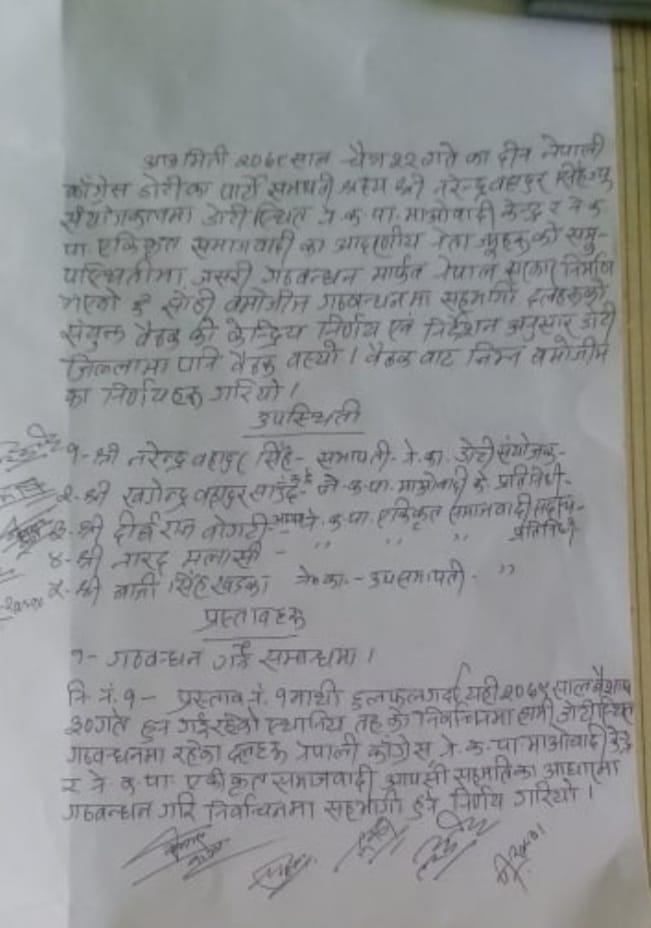 आज मिती २०७८ साल चैत्र २२ गते का दीन नेपाली
काँग्रेस डोटीका पार्टी सभापती श्री नरेन्द्र वहादुर सिंहज्यु
संयोजकत्वमा डोटी स्थित ने.क.पा. माओवादी केन्द्र र ने.क
पा. एकिकृत समाजवादी का आदरणीय नेता ज्यूहरुको समु-
पस्थितीमा जसरी गठवन्धन मार्फत नेपाल सरकार निर्माण
भएको छ सोही वमोजीम गठवन्धनमा सहभागी दलहरुको
संयुक्त वैठक को केन्द्रिय निर्णय एवं निर्देशन अनुसार डोटी
जिल्लामा पनि वैठक वस्यो । वैठक वाट निम्न वमोजीम
का निर्णयहरु गरियो ।
उपस्थिती
१- श्री नरेन्द्र वहादुर सिंह - सभापती - ने.का. डोटी संयोजक -
२- श्री खगेन्द्र वहादुर साउद - ने.क.पा. माओवादी के प्रतिनिधी -
३- श्री दीर्घराज वोगटी - ने.क.पा. एकिकृत समाजवादी
प्रतिनिधी
४- श्री नारद मलासी - " " "
५- श्री वाजी सिंह खडका ने.का. - उपसभापती - "
प्रस्तावहरु
१- गठवन्धन गर्ने सम्वन्धमा ।
नि.नं. १ - प्रस्ताव नं. १ माथी छलफल गर्दा यही २०७९ साल वैशाख
३० गते हुन गईरहेको स्थानिय तह को निर्वाचनमा हामी डोटी स्थित
गठवन्धनमा रहेका दलहरु नेपाली काँग्रेस, ने.क.पा. माओवादी केन्द्र
र ने.क.पा. एकीकृत समाजवादी आपसी सहमतिका आधारमा
गठवन्धन गरि निर्वाचनमा सहभागी हुने निर्णय गरियो ।